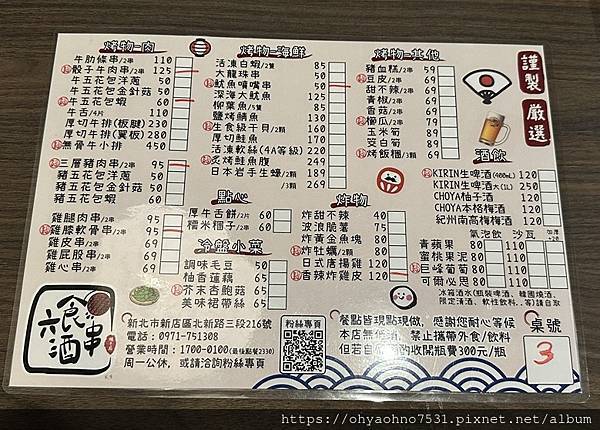 烤物-肉
牛肋條串/2串 110
骰子牛肉串/2串 125
牛五花包洋蔥 50
牛五花包金針菇 50
牛五花包蝦 60
牛舌/4片 110
厚切牛排(板腱) 230
厚切牛排(翼板) 380
無骨牛小排 450
三層豬肉串/2串 95
豬五花包洋蔥 50
豬五花包金針菇 50
豬五花包蝦 60
雞腿肉串/2串 95
雞膝軟骨串/2串 95
雞皮串/2串 69
雞屁股串/2串 69
雞心串/2串 69
烤物-海鮮
活凍白蝦/2隻 85
大龍珠串 50
魷魚噴嘴串 50
深海大魷魚 125
柳葉魚/5隻 85
鹽烤鯖魚 120
生食級干貝/2顆 169
厚切鮭魚 169
活凍軟絲(4A等級) 220
炙烤鮭魚腹 249
日本岩手生蠔/1顆 169
/2顆 269
點心
厚牛舌餅/2片 60
糯米糰子/2串 60
冷盤小菜
調味毛豆 50
柚香蓮藕 65
芥末杏鮑菇 65
美味裙帶絲 65
烤物-其他
豬血糕/2串 69
豆皮/2串 69
甜不辣/2串 69
青椒/2串 69
香菇/2串 69
櫛瓜/2串 69
玉米筍 69
茭白筍 69
烤飯糰/3顆 69
炸物
炸甜不辣 40
波浪脆薯 75
炸黃金魚塊 80
炸牡蠣/2顆 80
日式唐揚雞 120
香辣炸雞皮 120
謹製
嚴選
酒飲
KIRIN生啤酒(400mL) 120
KIRIN生啤酒大(1L) 250
CHOYA柚子酒 120
CHOYA本格梅酒 120
紀州南高梅梅酒 120
氣泡飲 沙瓦
青蘋果 80 110
蜜桃果泥 80 110
巨峰葡萄 80 110
可爾必思 80 110
冰箱酒水(瓶裝啤酒、韓國燒酒、
限定清酒、軟性飲料、等)請自取
食串六酒
新北市新店區北新路三段216號
電話：0971-751308
營業時間：1700-0100(最後點餐2330)
周一公休，或請洽詢粉絲專頁
粉絲專頁
餐點皆現點現做，感謝您耐心等候
本店無低消，禁止攜帶外食/飲料
桌號
3
https://ohyaohno7531.pixnet.net/album